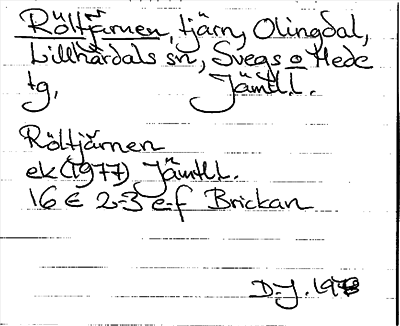 Röltjärnen, tjärn, Olingdal,
Lillhärdals sn, Svegs o Hede
tg, Jämtl.l.
Röltjärnen
ek (1977) Jämtl.l.
16 E 2-3 e-f Brickan
D-J. 1978